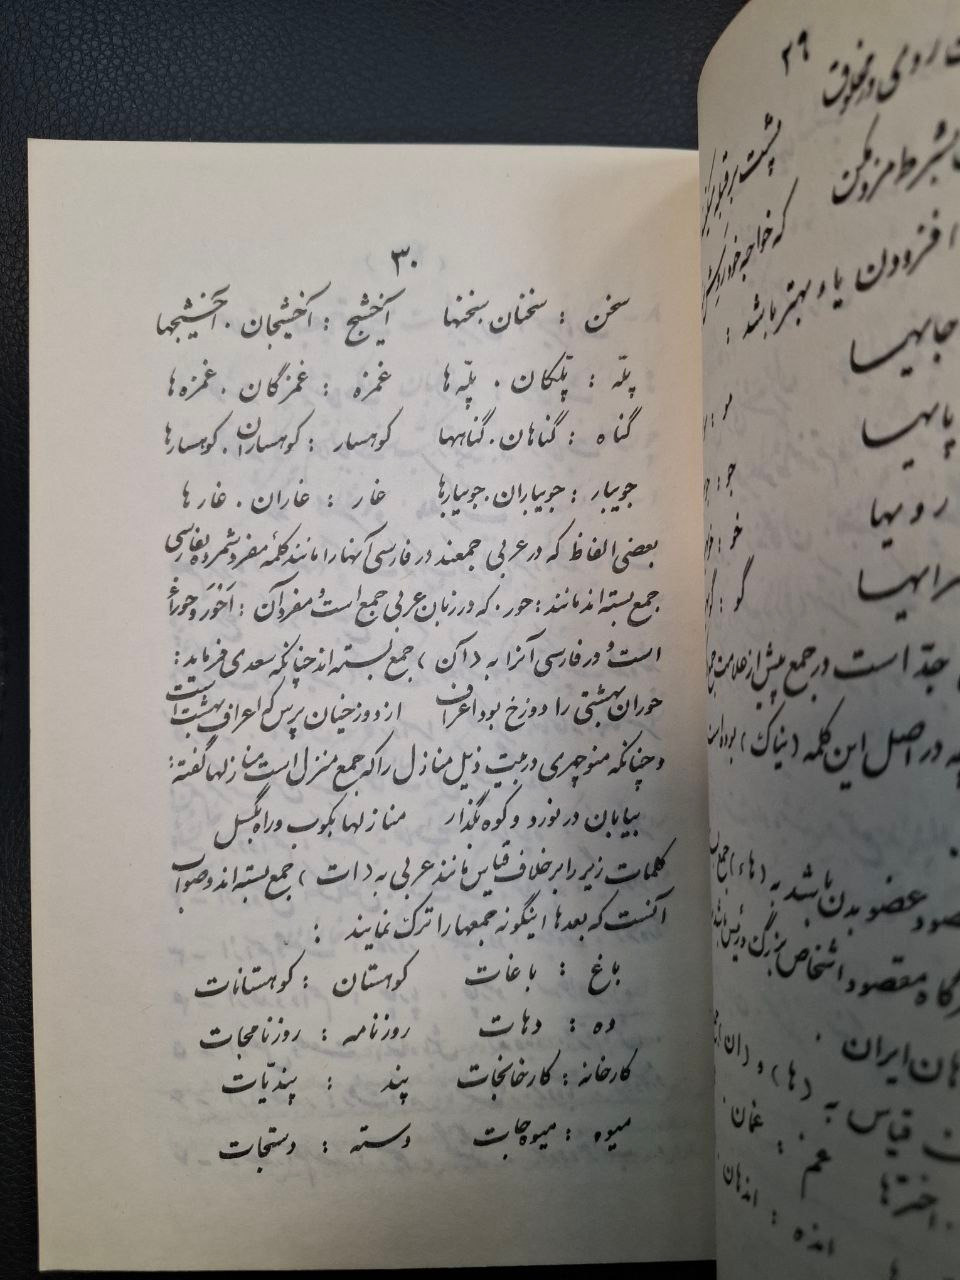 ۳۰
سخن : سخنان سخنها آخشیج : آخشیجان . آخشیجها
پلّه : پلّکان . پلّه‌ها غمزه : غمزگان . غمزه‌ها
گناه : گناهان . گناهها کوهسار : کوهساران . کوهسارها
جویبار : جویباران . جویبارها غار : غاران . غارها
بعضی الفاظ که در عربی جمعند در فارسی آنها را مانند کلمهٔ مفرد شمرده بفارسی
جمع بسته‌اند مانند : حور . که در زبان عربی جمع است و مفرد آن : اَحْوَر و حوراء
است و در فارسی آنرا به ( آن ) جمع بسته‌اند چنانکه سعدی فرماید :
حوران بهشتی را دوزخ بود اعراف از دوزخیان پرس که اعراف بهشت است
و چنانکه منوچهری در بیت ذیل منازل را که جمع منزل است منازلها گفته :
بیابان در نورد و کوه بگذار منازلها بکوب و راه بگسل
کلمات زیر را بر خلاف قیاس مانند عربی به ( ات ) جمع بسته‌اند و صواب
آنست که بعدها اینگونه جمعها را ترک نمایند :
باغ : باغات کوهستان : کوهستانات
ده : دهات روزنامه : روزنامجات
کارخانه : کارخانجات پند : پندیّات
میوه : میوه‌جات دسته : دستجات
۲۹
روی در مخلوق
پشت بر قبله
بشرط مزد مکن
که خواجه خود
افزودن یاء بهتر باشد :
جایهیا
پایهیا
رویها
سرایهیا
جدّ است در جمع پیش از علامت جمع
در اصل این کلمه ( نیاک ) بوده است
عضو بدن باشد به ( هاء ) جمع
مقصود اشخاص بزرگ و رئیس باشد
ایران
قیاس به ( ها ) و ( ان )
غم :
اخترها